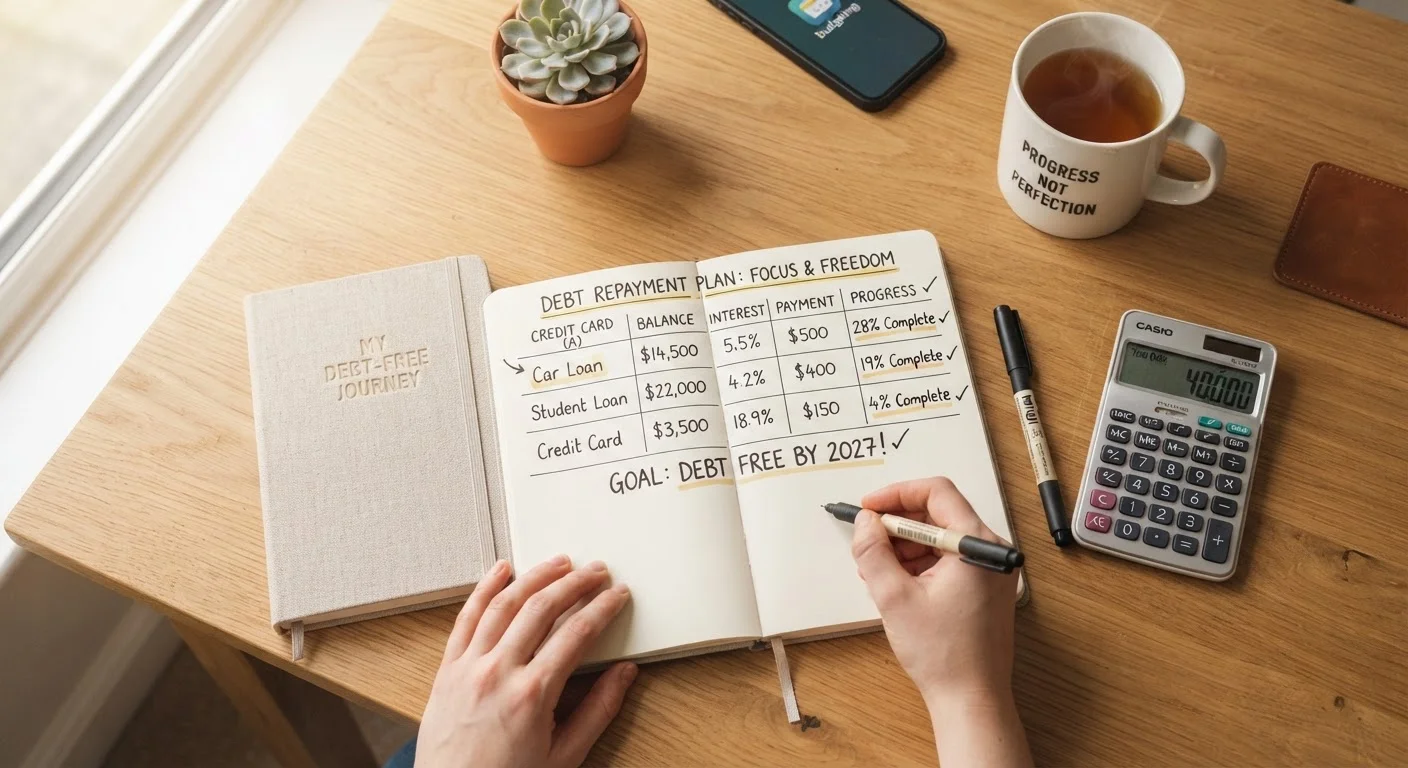 budgeting
PROGRESS
NOT
PERFECTION
MY
DEBT-FREE
JOURNEY
DEBT REPAYMENT PLAN: FOCUS & FREEDOM
CREDIT CARD (A) BALANCE INTEREST PAYMENT PROGRESS ✓
Car Loan $14,500 5.5% $500 28% Complete ✓
Student Loan $22,000 4.2% $400 19% Complete ✓
Credit Card $3,500 18.9% $150 4% Complete ✓
GOAL: DEBT FREE BY 2027! ✓
CASIO
40,000
MC MR M- M+ ÷
% 7 8 9 ×
% 4 5 6 -
C 1 2 3 +
0 · =